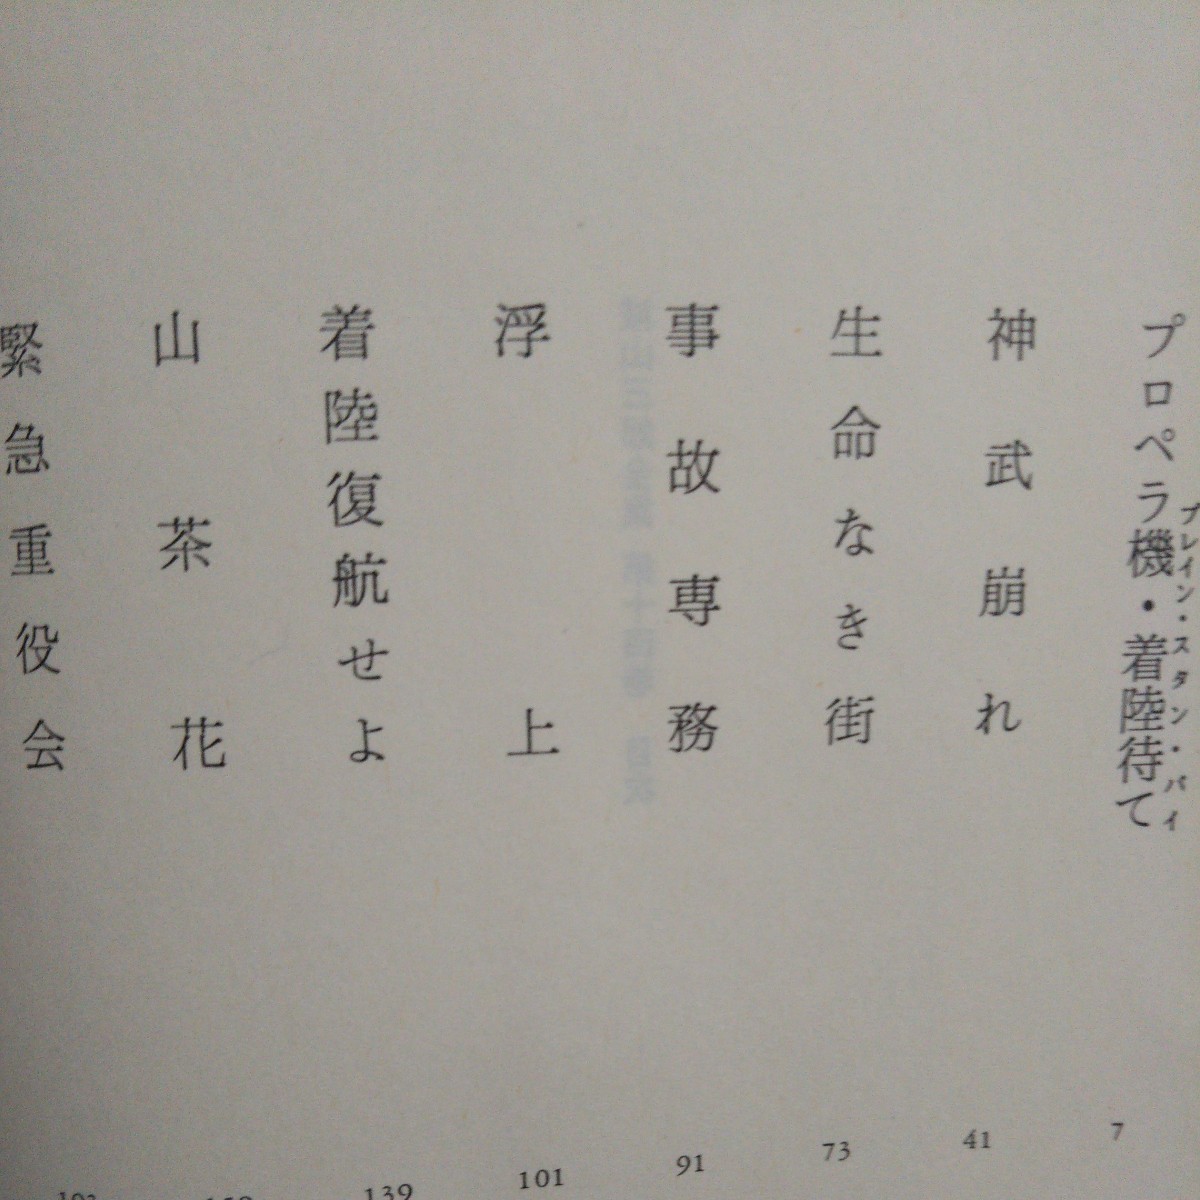 プロペラ機・着陸待て
プレイン・スタン・バイ
7
神武崩れ
41
生命なき街
73
事故専務
91
浮上
101
着陸復航せよ
139
山茶花
緊急重役会